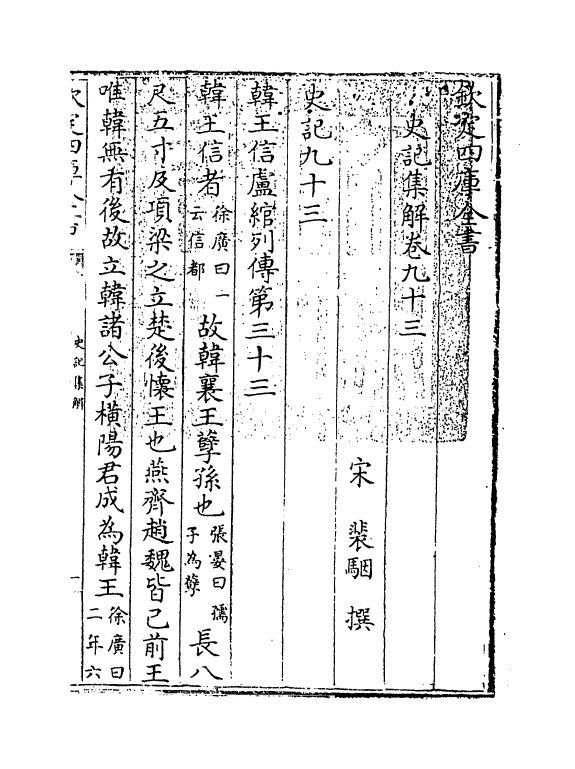 欽定四庫全書
史記集解卷九十三
宋 裴駰 撰
史記九十三
韓王信盧綰列傳第三十三
韓王信者徐廣曰一云信都故韓襄王孽孫也張晏曰孺子為孽長八
尺五寸及項梁之立楚後懷王也燕齊趙魏皆已前王
唯韓無有後故立韓諸公子橫陽君成為韓王徐廣曰二年六
史記集解
一